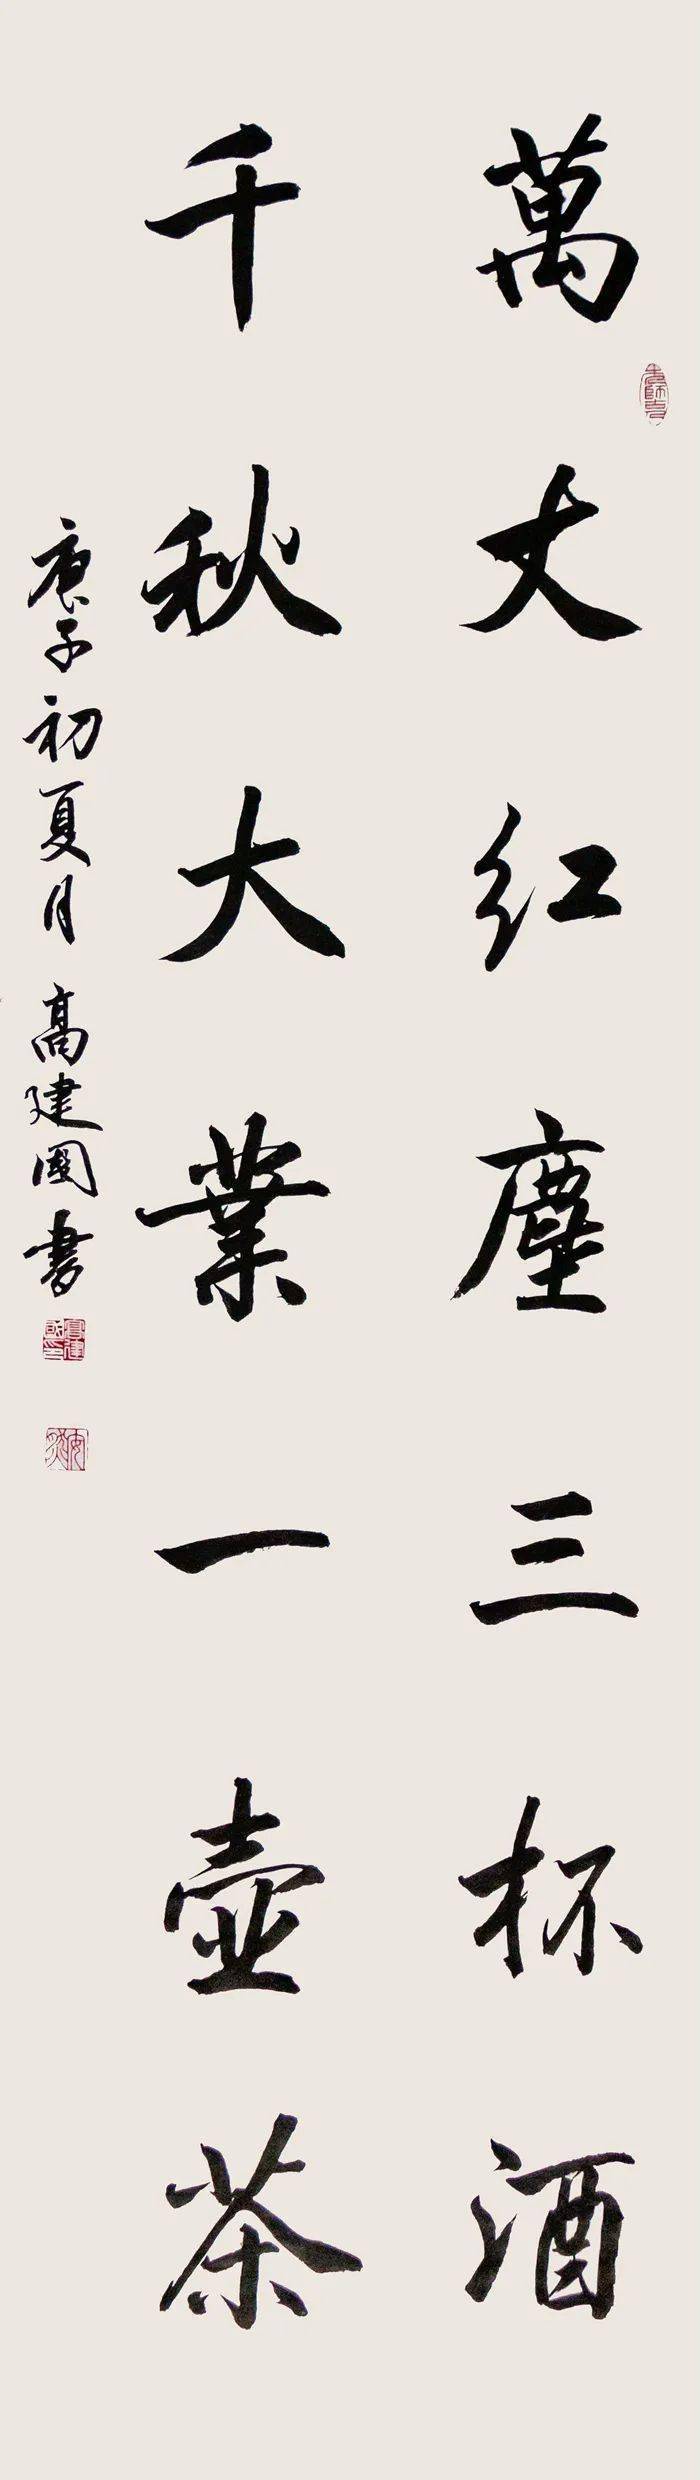 萬丈红塵三杯酒
千秋大業一壺茶
庚子初夏月 高建國書